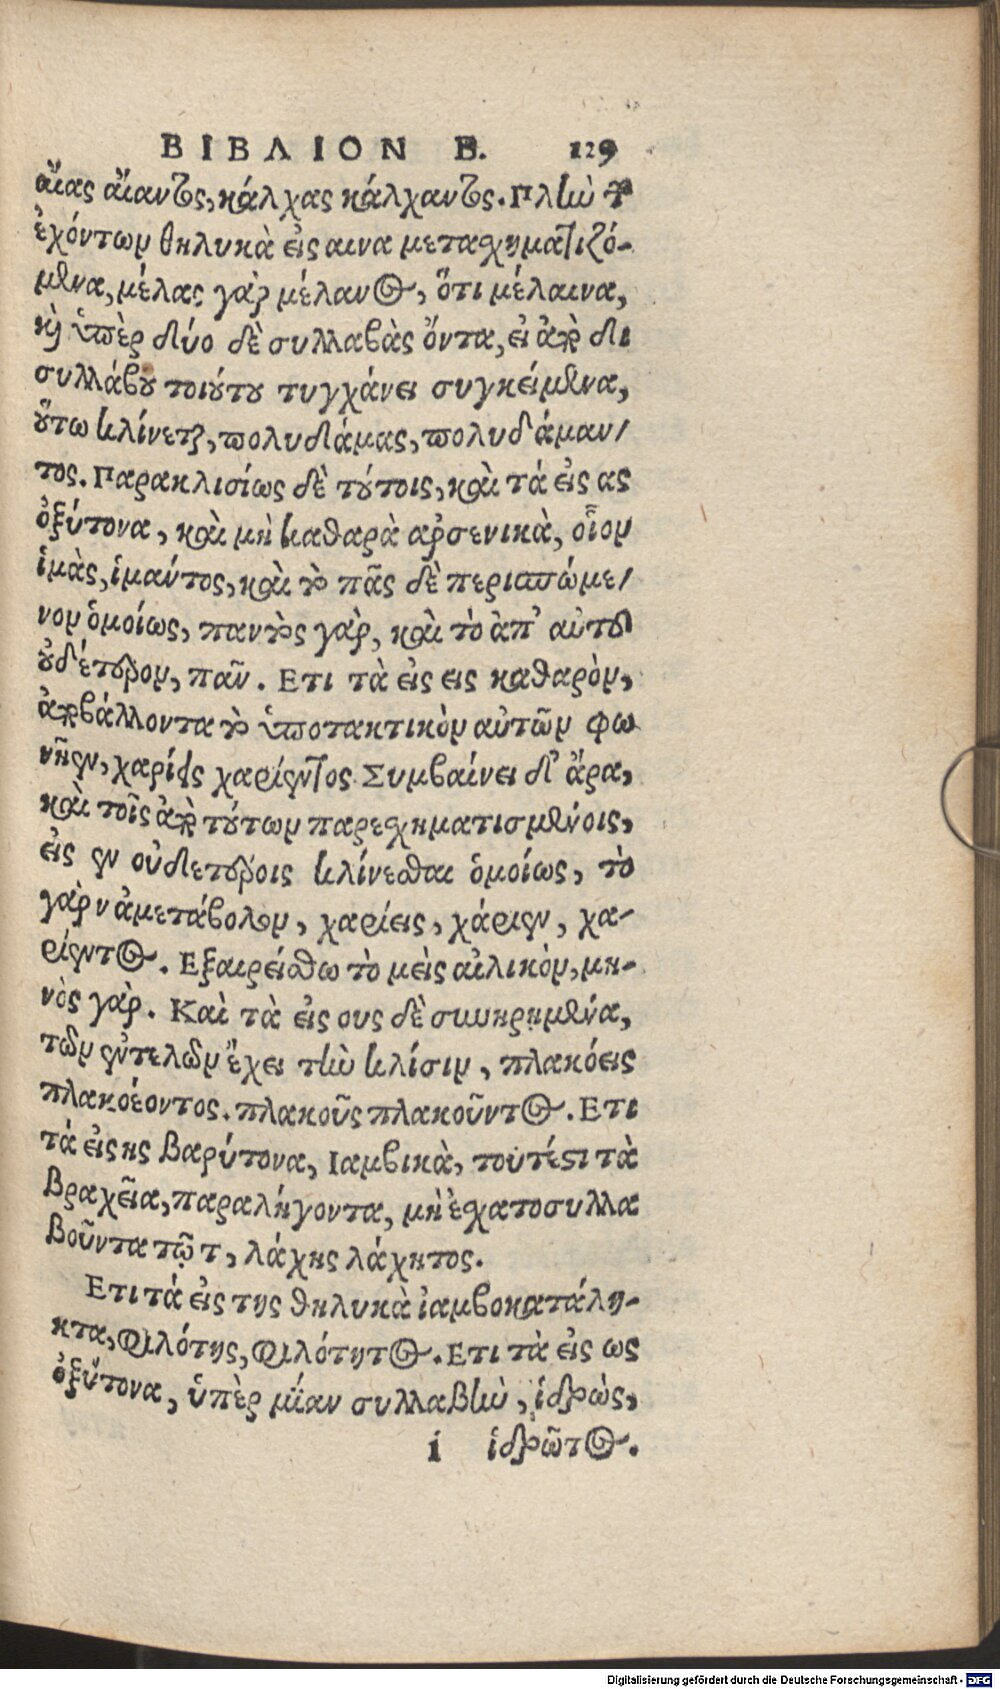 ΒΙΒΛΙΟΝ Β. 129
αἴας αἴαντος, κάλχας κάλχαντος. Πλὴν τῶν
ἐχόντων θηλυκὰ εἰς αινα μετασχηματιζό-
μενα, μέλας γὰρ μέλανος, ὅτι μέλαινα,
καὶ ὑπὲρ δύο δὲ συλλαβὰς ὄντα, εἰ ἀπὸ δι
συλλάβου τοιούτου τυγχάνει συγκείμενα,
οὕτω κλίνεται, πολυδάμας, πολυδάμαν/
τος. Παρακλισίως δὲ τούτοις, καὶ τά εἰς ας
ὀξύτονα, καὶ μὴ καθαρὰ αρσενικὰ, οἷον
ἱμὰς, ἱμαύτος, καὶ τὸ πᾶς δὲ περισπώμε/
νον ὁμοίως, παντὸς γὰρ, καὶ τὸ ἀπ' αὐτοῦ
οὐδέτερον, πᾶν. Ετι τὰ εἰς εις καθαρὸν,
ἀποβάλλοντα τὸ ὑποτακτικὸν αὐτῶν φω
νῆεν, χαρίεις χαρίεντος Συμβαίνει δ' ἄρα,
καὶ τοῖς ἀπὸ τούτων παρεσχηματισμένοις,
εἰς εν οὐδετέροις κλίνεσθαι ὁμοίως, τὸ
γὰρ ν ἀμετάβολον, χαρίεις, χάριεν, χα-
ρίεντος. Εξαιρείσθω τὸ μεὶς αἰλικὸν, μη-
νὸς γὰρ. Καὶ τὰ εἰς ους δὲ συνηρημένα,
τῶν ἐντελῶν ἔχει τὴν κλίσιν, πλακόεις
πλακοέοντος. πλακοῦς πλακοῦντος. Ετι
τά εἰς ης βαρύτονα, Ιαμβικὰ, τουτέστι τὰ
βραχεῖα, παραλήγοντα, μὴ ἑχατοσυλλα
βοῦντα τῷ τ, λάχης λάχητος.
Ετι τά εἰς της θηλυκὰ ἰαμβοκατάλη-
κτα, φιλότης, φιλότητος. Ετι τὰ εἰς ως
ὀξύτονα, ὑπὲρ μίαν συλλαβὴν, ἱδρὼς,
i ἱδρῶτος.
Digitalisierung gefördert durch die Deutsche Forschungsgemeinschaft - DFG